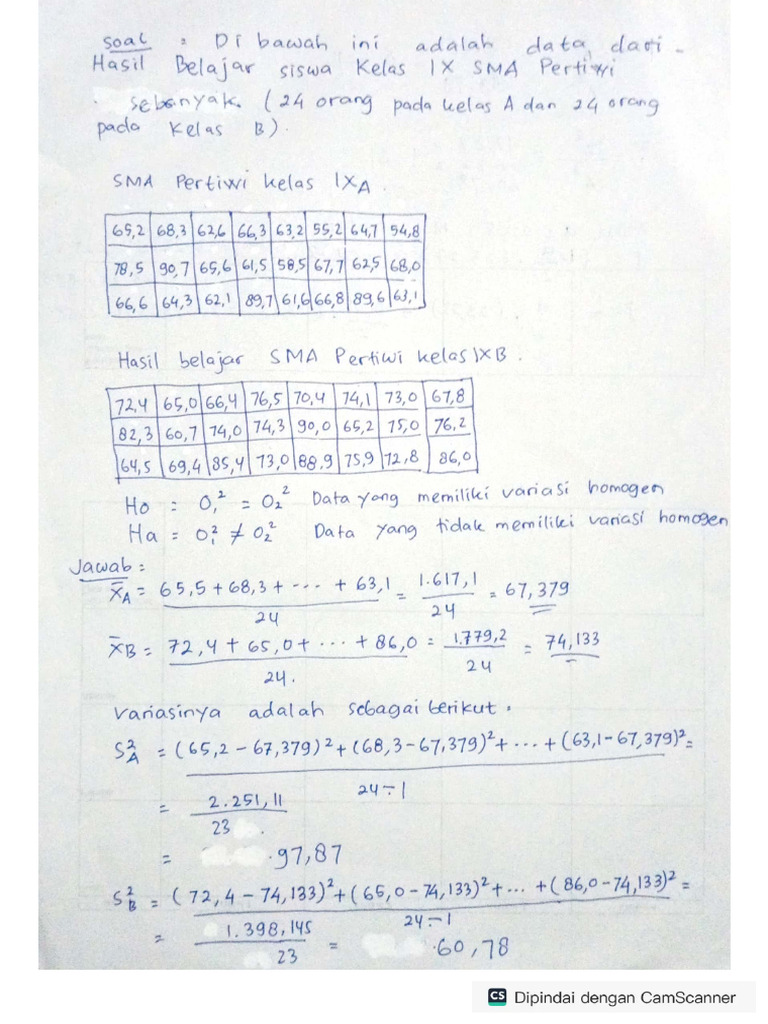 Soal : Di bawah ini adalah data dari
Hasil Belajar siswa Kelas IX SMA Pertiwi
sebanyak (24 orang pada kelas A dan 24 orang
pada kelas B).
SMA Pertiwi kelas IXA.
65,2 68,3 62,6 66,3 63,2 55,2 64,7 54,8
78,5 90,7 65,6 61,5 58,5 67,7 62,5 68,0
66,6 64,3 62,1 89,7 61,6 66,8 89,6 63,1
Hasil belajar SMA Pertiwi kelas IXB.
72,4 65,0 66,4 76,5 70,4 74,1 73,0 67,8
82,3 60,7 74,0 74,3 90,0 65,2 75,0 76,2
64,5 69,4 85,4 73,0 88,9 75,9 72,8 86,0
Ho = O₁² = O₂² Data yang memiliki variasi homogen
Ha = O₁² ≠ O₂² Data yang tidak memiliki variasi homogen
Jawab :
X̄A = 65,5 + 68,3 + ... + 63,1 = 1.617,1 = 67,379
24 24
X̄B = 72,4 + 65,0 + ... + 86,0 = 1.779,2 = 74,133
24. 24
Variasinya adalah sebagai berikut.
S²A = (65,2 - 67,379)² + (68,3 - 67,379)² + ... + (63,1 - 67,379)² =
24 - 1
= 2.251,11
23
= 97,87
S²B = (72,4 - 74,133)² + (65,0 - 74,133)² + ... + (86,0 - 74,133)² =
24 - 1
= 1.398,145 = 60,78
23
CS Dipindai dengan CamScanner